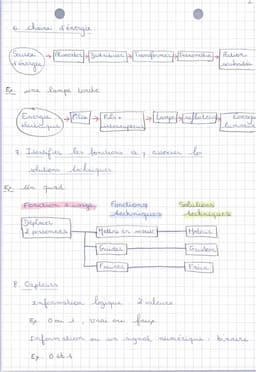 6. chaine d'énergie
Source d'énergie → Alimenter → Distribuer → Transformer → Transmettre → Action
Ex: une lampe torche
Energie électrique → Piles → Fils + interrupteur → Lampe → reflecteur → Energie lumineuse
7. Identifier les fonctions et associer les
solutions techniques
Ex: Un quad
Fonction d'usage Fonctions techniques Solutions techniques
Déplacer 2 personnes
Mettre en mouv Moteur
Guider Guidon
Freiner Frein
8. Capteurs
Information logique 2 valeurs
Ex: 0 ou 1, vrai ou faux
Information ou un signal numérique: binaire
Ex: 0 et 1